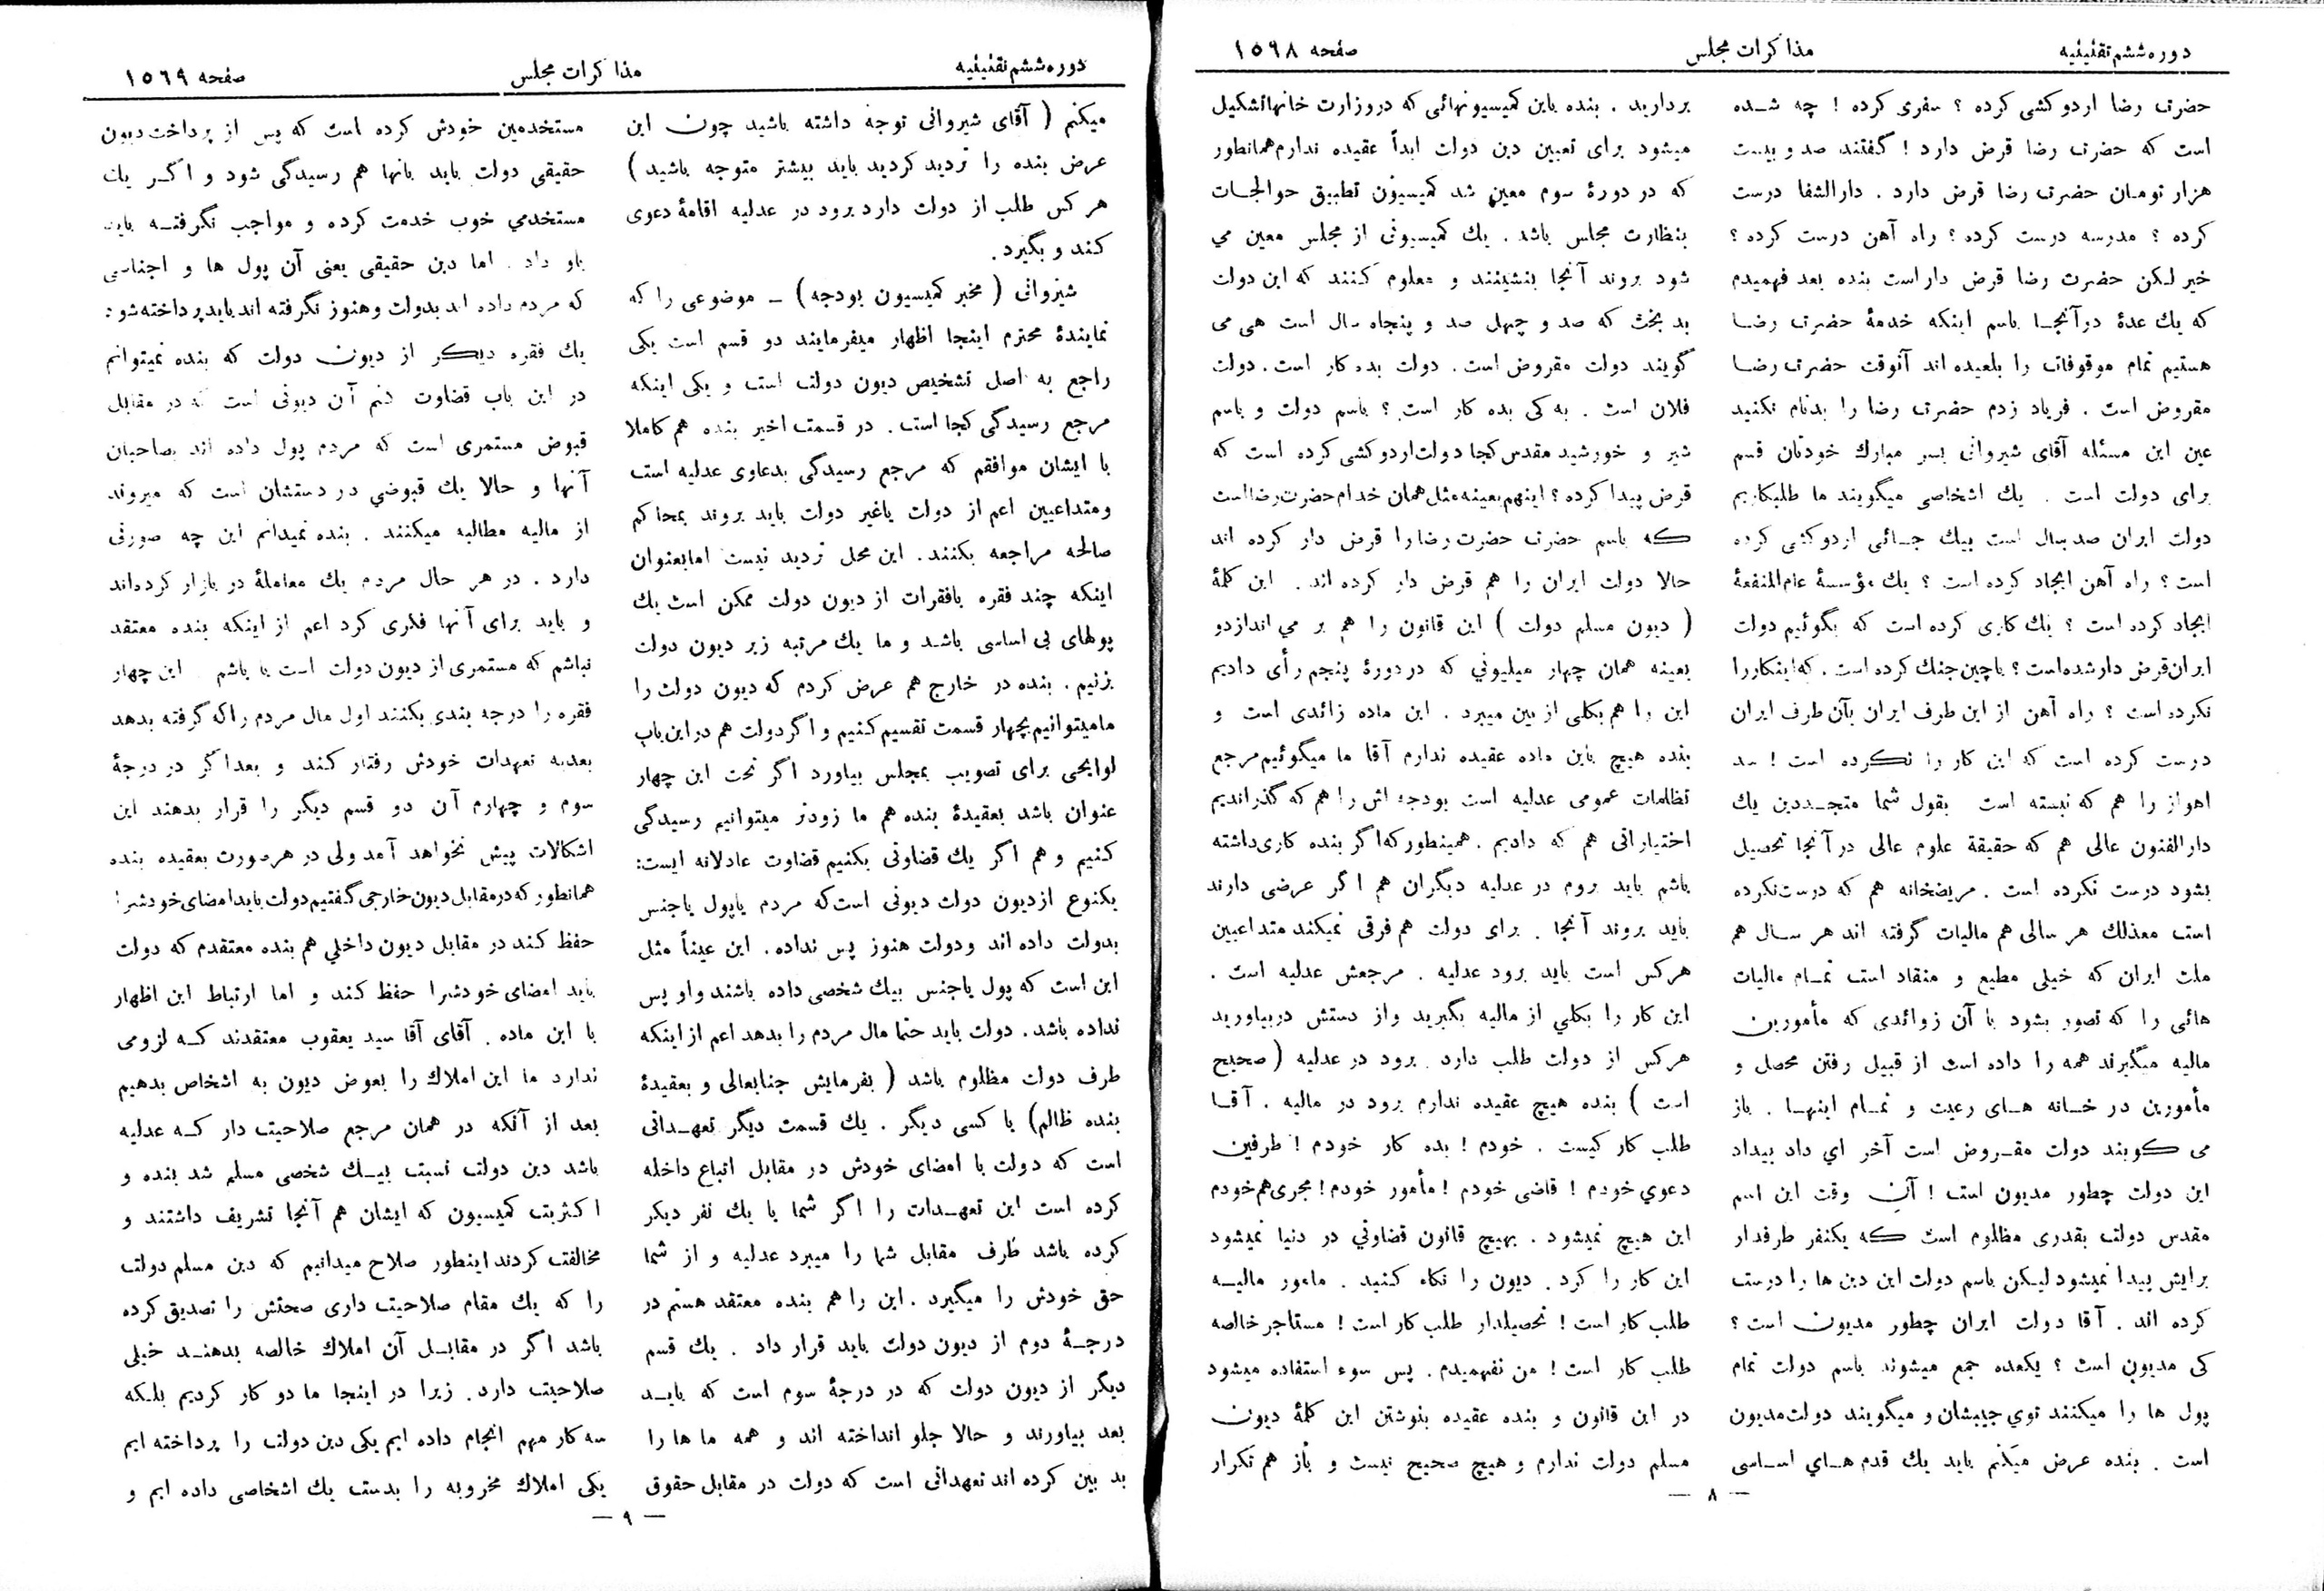 دوره ششم تقنینیه
مذاکرات مجلس
صفحه ۱۵۹۸
حضرت رضا اردوکشی کرده ؟ سفری کرده ! چه شده
است که حضرت رضا قرض دارد ! گفتند صد و بیست
هزار تومان حضرت رضا قرض دارد . دارالشفا درست
کرده ؟ مدرسه درست کرده ؟ راه آهن درست کرده ؟
خیر لکن حضرت رضا قرض دار است بنده بعد فهمیدم
که یك عدۀ در آنجا باسم اینکه خدمۀ حضرت رضا
هستیم تمام موقوفات را بلعیده اند آنوقت حضرت رضا
مقروض است . فریاد زدم حضرت رضا را بدنام نکنید
عین این مسئله آقای شیروانی بسر مبارك خودتان قسم
برای دولت است . یك اشخاصی میگویند ما طلبکاریم
دولت ایران صد سال است بیك جائی اردوکشی کرده
است ؟ راه آهن ایجاد کرده است ؟ یك مؤسسۀ عام المنفعۀ
ایجاد کرده است ؟ یك کاری کرده است که بگوئیم دولت
ایران قرض دار شده است ؟ با چین جنك کرده است . که اینکار را
نکرده است ؟ راه آهن از این طرف ایران بآن طرف ایران
درست کرده است که این کار را نکرده است ! سد
اهواز را هم که نبسته است بقول شما متجددین یك
دارالفنون عالی هم که حقیقة علوم عالی در آنجا تحصیل
بشود درست نکرده است . مریضخانه هم که درست نکرده
است معذلك هر سالی هم مالیات گرفته اند هر سال هم
ملت ایران که خیلی مطیع و منقاد است تمام مالیات
هائی را که تصور بشود با آن زوائدی که مأمورین
مالیه میگیرند همه را داده است از قبیل رفتن محصل و
مأمورین در خانه های رعیت و تمام اینها . باز
می گویند دولت مقروض است آخر اي داد بیداد
این دولت چطور مدیون است ! آن وقت این اسم
مقدس دولت بقدری مظلوم است که یکنفر طرفدار
برایش پیدا نمیشود لیکن باسم دولت این دین ها را درست
کرده اند . آقا دولت ایران چطور مدیون است ؟
کی مدیون است ؟ یکعده جمع میشوند باسم دولت تمام
پول ها را میکنند توي جیبشان و میگویند دولت مدیون
است . بنده عرض میکنم باید یك قدم هاي اساسی
بردارید . بنده باین کمیسیونهائی که در وزارت خانها تشکیل
میشود برای تعیین دین دولت ابداً عقیده ندارم همانطور
که در دورۀ سوم معین شد کمیسیون تطبیق حوالجات
بنظارت مجلس باشد . یك کمیسیونی از مجلس معین مي
شود بروند آنجا بنشینند و معلوم کنند که این دولت
بد بخت که صد و چهل صد و پنجاه سال است هی می
گویند دولت مقروض است . دولت بده کار است . دولت
فلان است . به کی بده کار است ؟ باسم دولت و باسم
شیر و خورشید مقدس کجا دولت اردوکشی کرده است که
قرض پیدا کرده ؟ اینهم بعینه مثل همان خدام حضرت رضا است
که باسم حضرت حضرت رضا را قرض دار کرده اند
حالا دولت ایران را هم قرض دار کرده اند . این کلمۀ
( دیون مسلم دولت ) این قانون را هم بر مي اندازد و
بعینه همان چهار میلیوني که در دورۀ پنجم رأی دادیم
این را هم بکلی از بین میبرد . این ماده زائدی است و
بنده هیچ باین ماده عقیده ندارم آقا ما میگوئیم مرجع
تظلمات عمومی عدلیه است بودجه اش را هم که گذراندیم
اختیاراتی هم که دادیم . همینطور که اگر بنده کاری داشته
باشم باید بروم در عدلیه دیگران هم اگر عرضی دارند
باید بروند آنجا . برای دولت هم فرقی نمیکند متداعیین
هرکس است باید برود عدلیه . مرجعش عدلیه است .
این کار را بکلي از مالیه بگیرید و از دستش دربیاورید
هرکس از دولت طلب دارد برود در عدلیه ( صحیح
است ) بنده هیچ عقیده ندارم برود در مالیه . آقا
طلب کار کیست . خودم ! بده کار خودم ! طرفین
دعوي خودم ! قاضی خودم ! مأمور خودم ! مجری هم خودم
این هیچ نمیشود . بهیچ قانون قضاوتي در دنیا نمیشود
این کار را کرد . دیون را نگاه کنید . مامور مالیه
طلب کار است ! تحصیلدار طلب کار است ! مستاجر خالصه
طلب کار است ! من نفهمیدم . پس سوء استفاده میشود
در این قانون و بنده عقیده بنوشتن این کلمۀ دیون
مسلم دولت ندارم و هیچ صحیح نیست و باز هم تکرار
— ۸ —
دوره ششم تقنینیه
مذاکرات مجلس
صفحه ۱۵٦۹
میکنم ( آقای شیروانی توجه داشته باشید چون این
عرض بنده را تردید کردید باید بیشتر متوجه باشید )
هر کس طلب از دولت دارد برود در عدلیه اقامۀ دعوی
کند و بگیرد .
شیروانی ( مخبر کمیسیون بودجه ) ـ موضوعی را که
نمایندۀ محترم اینجا اظهار میفرمایند دو قسم است یکی
راجع به اصل تشخیص دیون دولت است و یکی اینکه
مرجع رسیدگی کجا است . در قسمت اخیر بنده هم کاملا
با ایشان موافقم که مرجع رسیدگی بدعاوی عدلیه است
و متداعیین اعم از دولت یا غیر دولت باید بروند بمحاکم
صالحه مراجعه بکنند . این محل تردید نیست اما بعنوان
اینکه چند فقره یا فقرات از دیون دولت ممکن است یك
پولهای بی اساسی باشد و ما یك مرتبه زیر دیون دولت
بزنیم . بنده در خارج هم عرض کردم که دیون دولت را
ما میتوانیم بچهار قسمت تقسیم کنیم و اگر دولت هم در این باب
لوایحی برای تصویب بمجلس بیاورد اگر تحت این چهار
عنوان باشد بعقیدۀ بنده هم ما زودتر میتوانیم رسیدگی
کنیم و هم اگر یك قضاوتی بکنیم قضاوت عادلانه ایست :
یکنوع از دیون دولت دیونی است که مردم یا پول یا جنس
بدولت داده اند و دولت هنوز پس نداده . این عیناً مثل
این است که پول یا جنس بیك شخصی داده باشند و او پس
نداده باشد . دولت باید حتما مال مردم را بدهد اعم از اینکه
طرف دولت مظلوم باشد ( بفرمایش جنابعالی و بعقیدۀ
بنده ظالم ) یا کسی دیگر . یك قسمت دیگر تعهداتی
است که دولت با امضای خودش در مقابل اتباع داخله
کرده است این تعهدات را اگر شما با یك نفر دیگر
کرده باشد طرف مقابل شما را میبرد عدلیه و از شما
حق خودش را میگیرد . این را هم بنده معتقد هستم در
درجۀ دوم از دیون دولت باید قرار داد . یك قسم
دیگر از دیون دولت که در درجۀ سوم است که باید
بعد بیاورند و حالا جلو انداخته اند و همه ما ها را
بد بین کرده اند تعهداتی است که دولت در مقابل حقوق
مستخدمین خودش کرده است که پس از پرداخت دیون
حقیقی دولت باید بآنها هم رسیدگی شود و اگر یك
مستخدمي خوب خدمت کرده و مواجب نگرفته باید
باو داد . اما دین حقیقی یعنی آن پول ها و اجناسی
که مردم داده اند بدولت و هنوز نگرفته اند باید پرداخته شود
یك فقره دیگر از دیون دولت که بنده نمیتوانم
در این باب قضاوت کنم آن دیونی است که در مقابل
قبوض مستمری است که مردم پول داده اند بصاحبان
آنها و حالا یك قبوضي در دستشان است که میروند
از مالیه مطالبه میکنند . بنده نمیدانم این چه صورتی
دارد . در هر حال مردم یك معاملۀ در بازار کرده‌اند
و باید برای آنها فکری کرد اعم از اینکه بنده معتقد
نباشم که مستمری از دیون دولت است یا باشم این چهار
فقره را درجه بندی بکنند اول مال مردم را که گرفته بدهد
بعد به تعهدات خودش رفتار کند و بعد اگر در درجۀ
سوم و چهارم آن دو قسم دیگر را قرار بدهند این
اشکالات پیش نخواهد آمد ولی در هرصورت بعقیده بنده
همانطور که در مقابل دیون خارجی گفتیم دولت باید امضای خودش را
حفظ کند در مقابل دیون داخلي هم بنده معتقدم که دولت
باید امضای خودشرا حفظ کند و اما ارتباط این اظهار
با این ماده . آقای آقا سید یعقوب معتقدند که لزومی
ندارد ما این املاك را بعوض دیون به اشخاص بدهیم
بعد از آنکه در همان مرجع صلاحیت دار که عدلیه
باشد دین دولت نسبت بیك شخصی مسلم شد بنده و
اکثریت کمیسیون که ایشان هم آنجا تشریف داشتند و
مخالفت کردند اینطور صلاح میدانیم که دین مسلم دولت
را که یك مقام صلاحیت داری صحتش را تصدیق کرده
باشد اگر در مقابل آن املاك خالصه بدهند خیلی
صلاحیت دارد . زیرا در اینجا ما دو کار کردیم بلکه
سه کار مهم انجام داده ایم یکی دین دولت را پرداخته ایم
یکی املاك مخروبه را بدست یك اشخاصی داده ایم و
— ۹ —